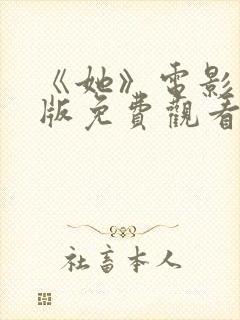 《她》電影
版免費觀看
社畜本人